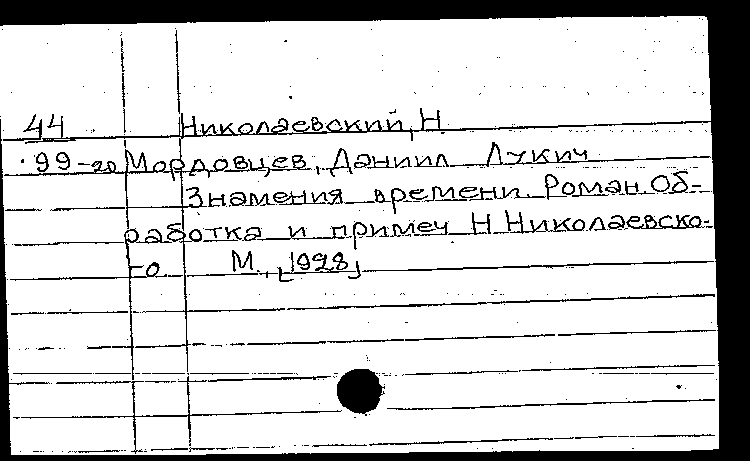 44 Николаевский, Н.
99-20 Мордовцев, Даниил Лукич
Знамения времени. Роман. Об-
работка и примеч. Н. Николаевско-
го. М., [1928]